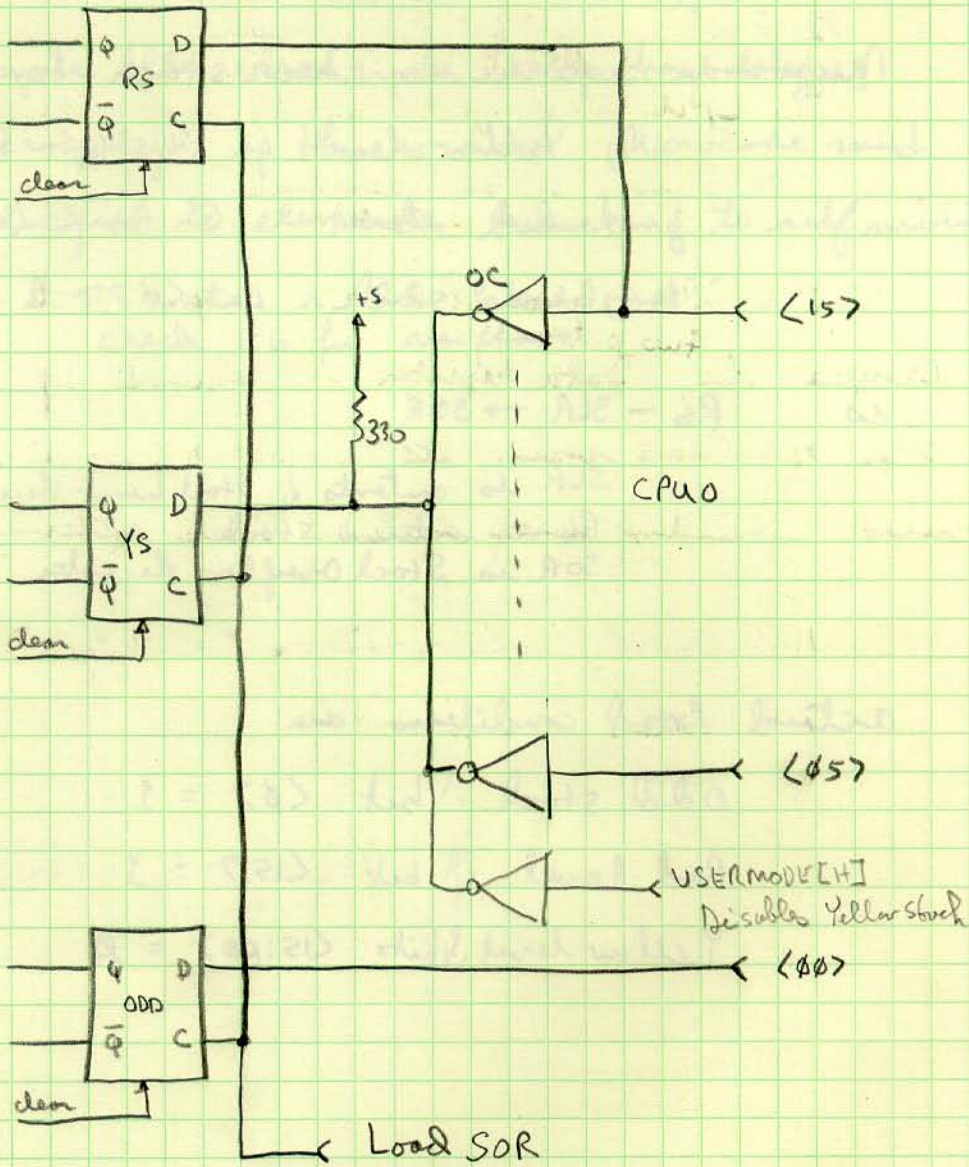 Q D
RS
Q̅ C
clear
OC
<15>
+5
330
CPU0
Q D
YS
Q̅ C
clear
<05>
USERMODE[H]
Disables Yellow Stack
Q D
ODD
Q̅ C
<00>
clear
Load SOR